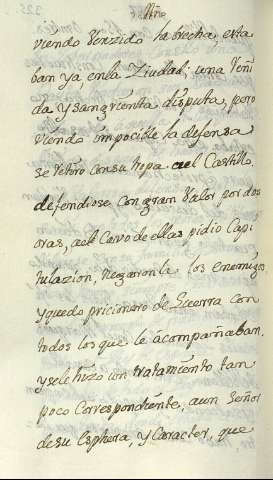 viendo Venzido la brecha, esta
ban ya, en la Ziudad; una Reñi
da y sangrienta disputa, pero
viendo impocible la defensa
se retiro con su tropa al Castillo
defendiose con gram Valor por dos
oras, a el Cavo de ellas pidio Capi
tulazion, negaronle los enemigos
y quedo pricionero de Guerra con
todos los que le acompañaban,
y se le hizo un tratamiento tan
poco Correspondiente, a un Señor
de su Esphera, y Caracter, que